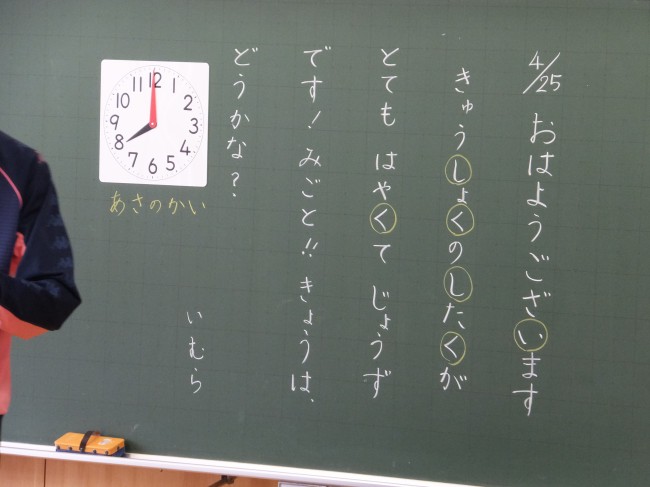 4/25 おはようございます
きゅうしょくのしたくが
とても はやくて じょうず
です! みごと!! きょうは、
どうかな?
いむら
12
1
2
3
4
5
6
7
8
9
10
11
あさのかい